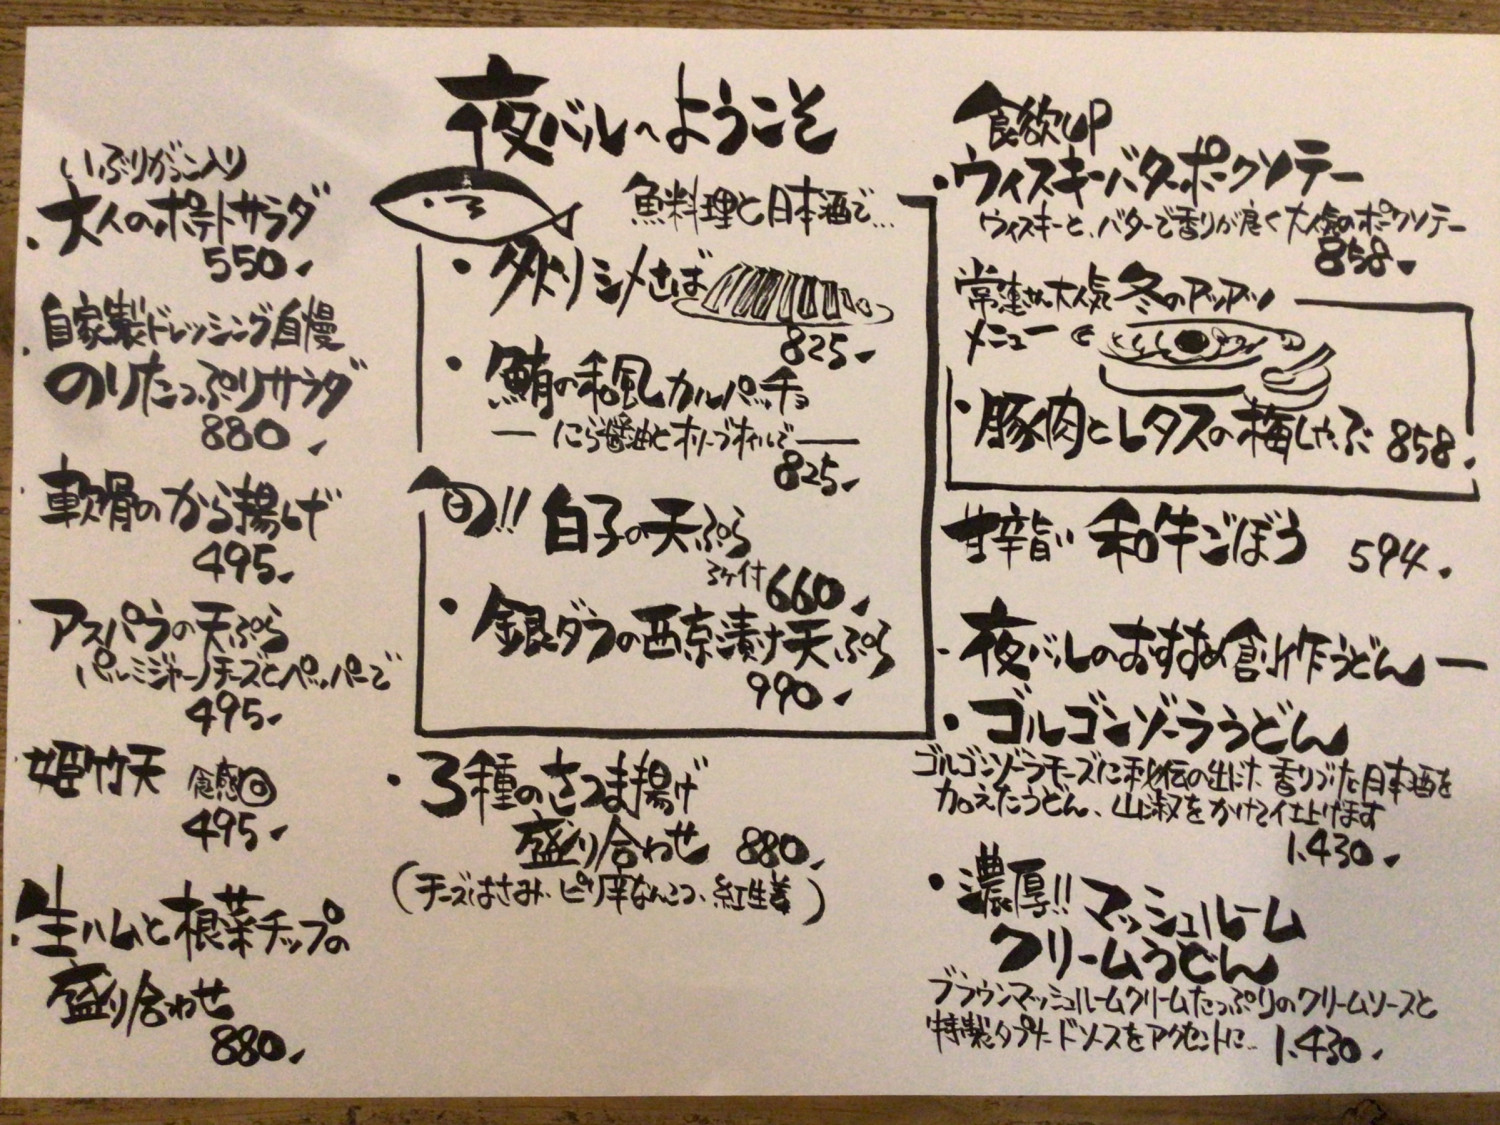 夜バルへようこそ
いぶりがっこ入り
・大人のポテトサラダ
550.
自家製ドレッシング自慢
のりたっぷりサラダ
880.
軟骨のから揚げ
495.
アスパラの天ぷら
パルミジャーノチーズとペッパーで
495.
姫竹天 食感◎
495.
・生ハムと根菜チップの
盛り合わせ
880.
魚料理と日本酒で…
・炙りシメさば
825.
・鮪の和風カルパッチョ
ー にら醤油とオリーブオイルで ー
825.
旬!! 白子の天ぷら
3ケ付 660.
・銀ダラの西京漬け天ぷら
990.
・3種のさつま揚げ
盛り合わせ 880.
(チーズはさみ、ピリ辛なんこつ、紅生姜)
食欲UP
・ウィスキーバターポークソテー
ウィスキーと、バターで香りが良く大人気のポークソテー
858.
常連さん大人気 冬のアツアツ
メニュー
・豚肉とレタスの梅しゃぶ 858.
甘辛旨い 和牛ごぼう 594.
- 夜バルのおすすめ創作うどん ー
・ゴルゴンゾーラうどん
ゴルゴンゾーラチーズに秘伝の出汁と香りづけた日本酒を
加えたうどん、山椒をかけて仕上げます
1.430.
・濃厚!! マッシュルーム
クリームうどん
ブラウンマッシュルームクリームたっぷりのクリームソースと
特製タプナードソースをアクセントに… 1.430.